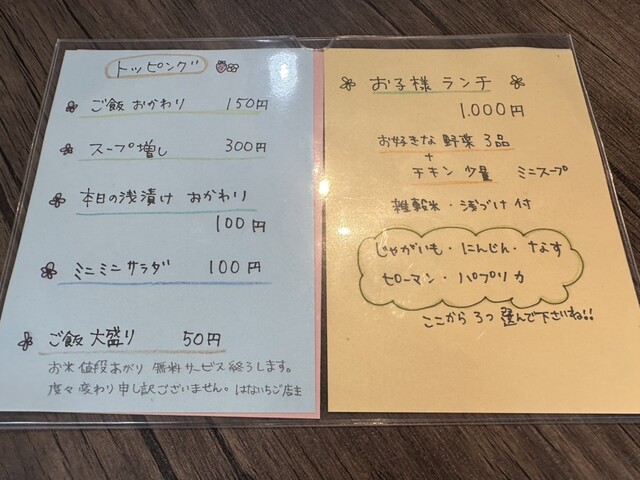 トッピング
ご飯 おかわり 150円
スープ増し 300円
本日の浅漬け おかわり
100円
ミニミニ サラダ 100円
ご飯 大盛り 50円
お米 値段あがり 無料サービス終ろします。
度々 変わり申し訳ございません。はないちご店主
お子様 ランチ
1.000円
お好きな 野菜 3品
+
チキン 少量 ミニスープ
雑穀米・浅づけ 付
じゃがいも・にんじん・なす
ピーマン・パプリカ
ここから 3つ 選んで下さいね!!